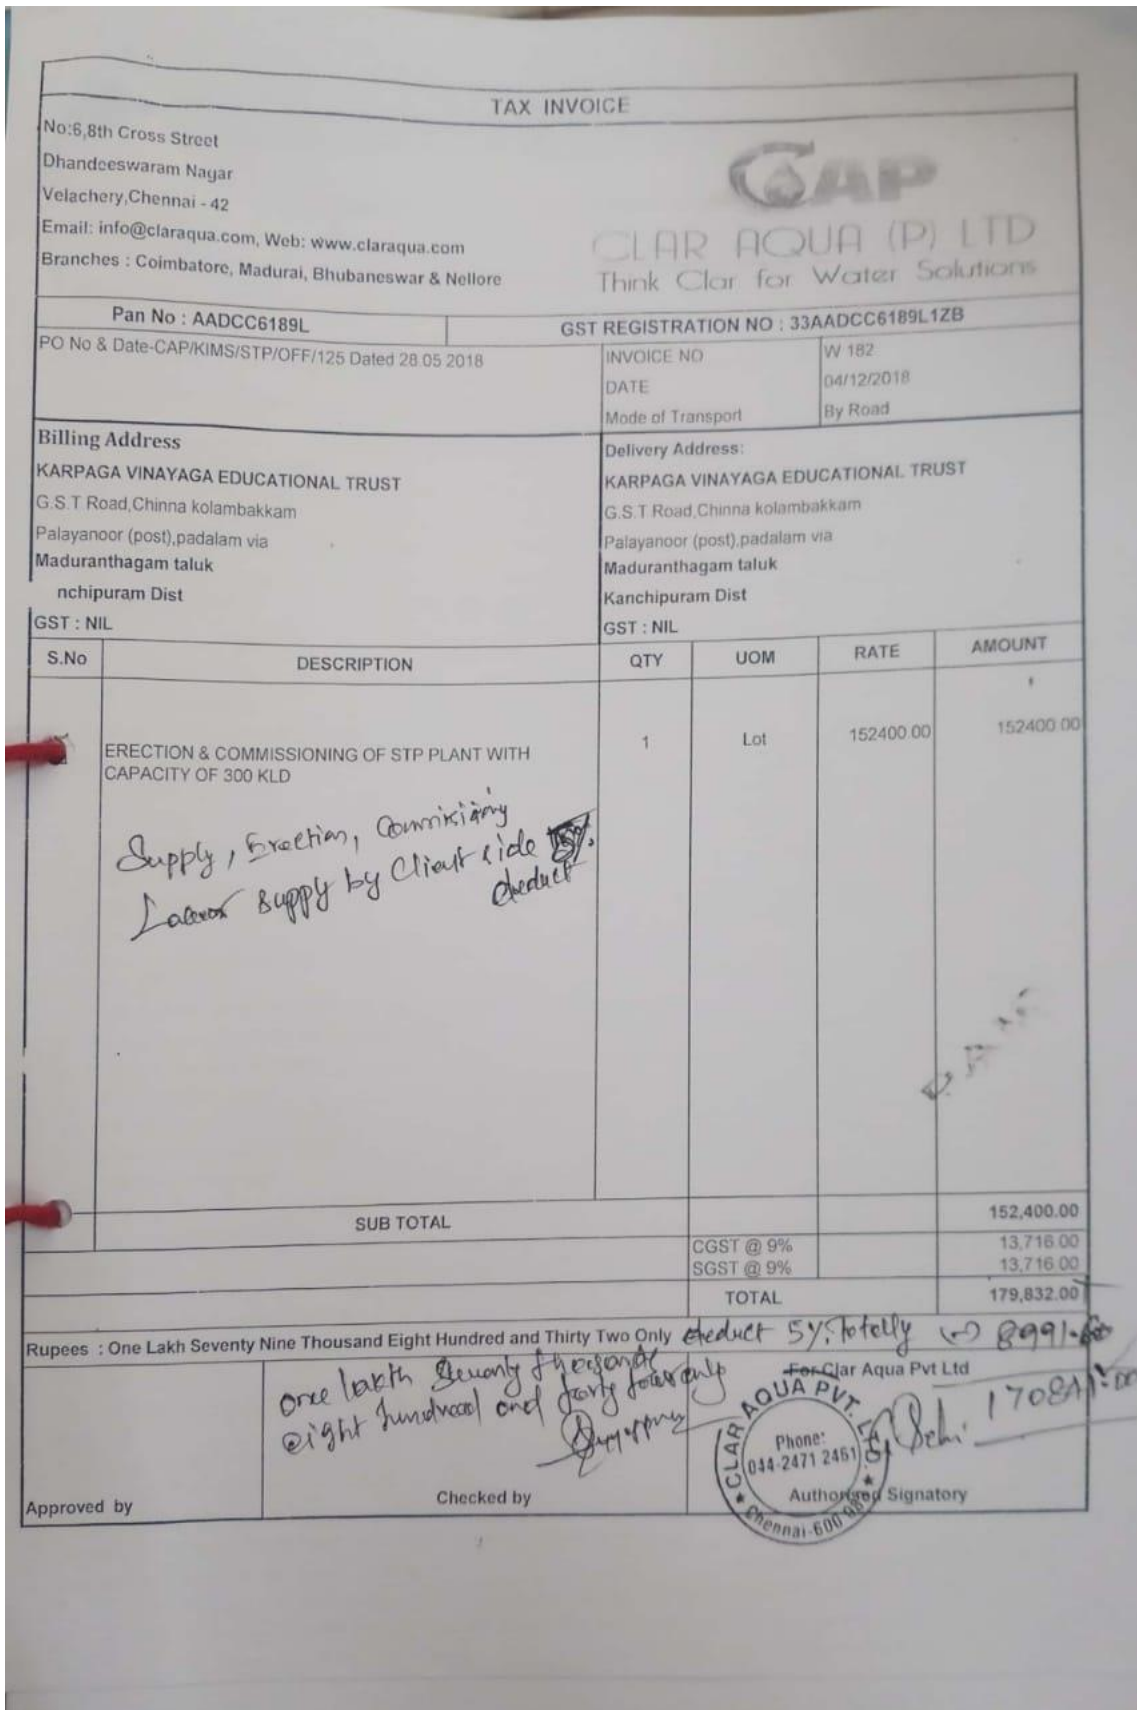 TAX INVOICE
No:6,8th Cross Street
Dhandeeswaram Nagar
Velachery,Chennai - 42
Email: info@claraqua.com, Web: www.claraqua.com
Branches : Coimbatore, Madurai, Bhubaneswar & Nellore
CAP
CLAR AQUA (P) LTD
Think Clar for Water Solutions
Pan No : AADCC6189L
GST REGISTRATION NO : 33AADCC6189L1ZB
PO No & Date-CAP/KIMS/STP/OFF/125 Dated 28.05.2018
INVOICE NO W 182
DATE 04/12/2018
Mode of Transport By Road
Billing Address
KARPAGA VINAYAGA EDUCATIONAL TRUST
G.S.T Road,Chinna kolambakkam
Palayanoor (post),padalam via
Maduranthagam taluk
nchipuram Dist
GST : NIL
Delivery Address:
KARPAGA VINAYAGA EDUCATIONAL TRUST
G.S.T Road,Chinna kolambakkam
Palayanoor (post),padalam via
Maduranthagam taluk
Kanchipuram Dist
GST : NIL
S.No DESCRIPTION QTY UOM RATE AMOUNT
ERECTION & COMMISSIONING OF STP PLANT WITH 1 Lot 152400.00 152400.00
CAPACITY OF 300 KLD
Supply, Erection,
supply by Client side
deduct
SUB TOTAL 152,400.00
CGST @ 9% 13,716.00
SGST @ 9% 13,716.00
TOTAL 179,832.00
Rupees : One Lakh Seventy Nine Thousand Eight Hundred and Thirty Two Only deduct 5% Totally (-) 8991
one lakth
eight and only
For Clar Aqua Pvt Ltd
CLAR AQUA PVT. LTD.
Phone:
044-2471 2461
Chennai-600
Approved by
Checked by
Authorised Signatory